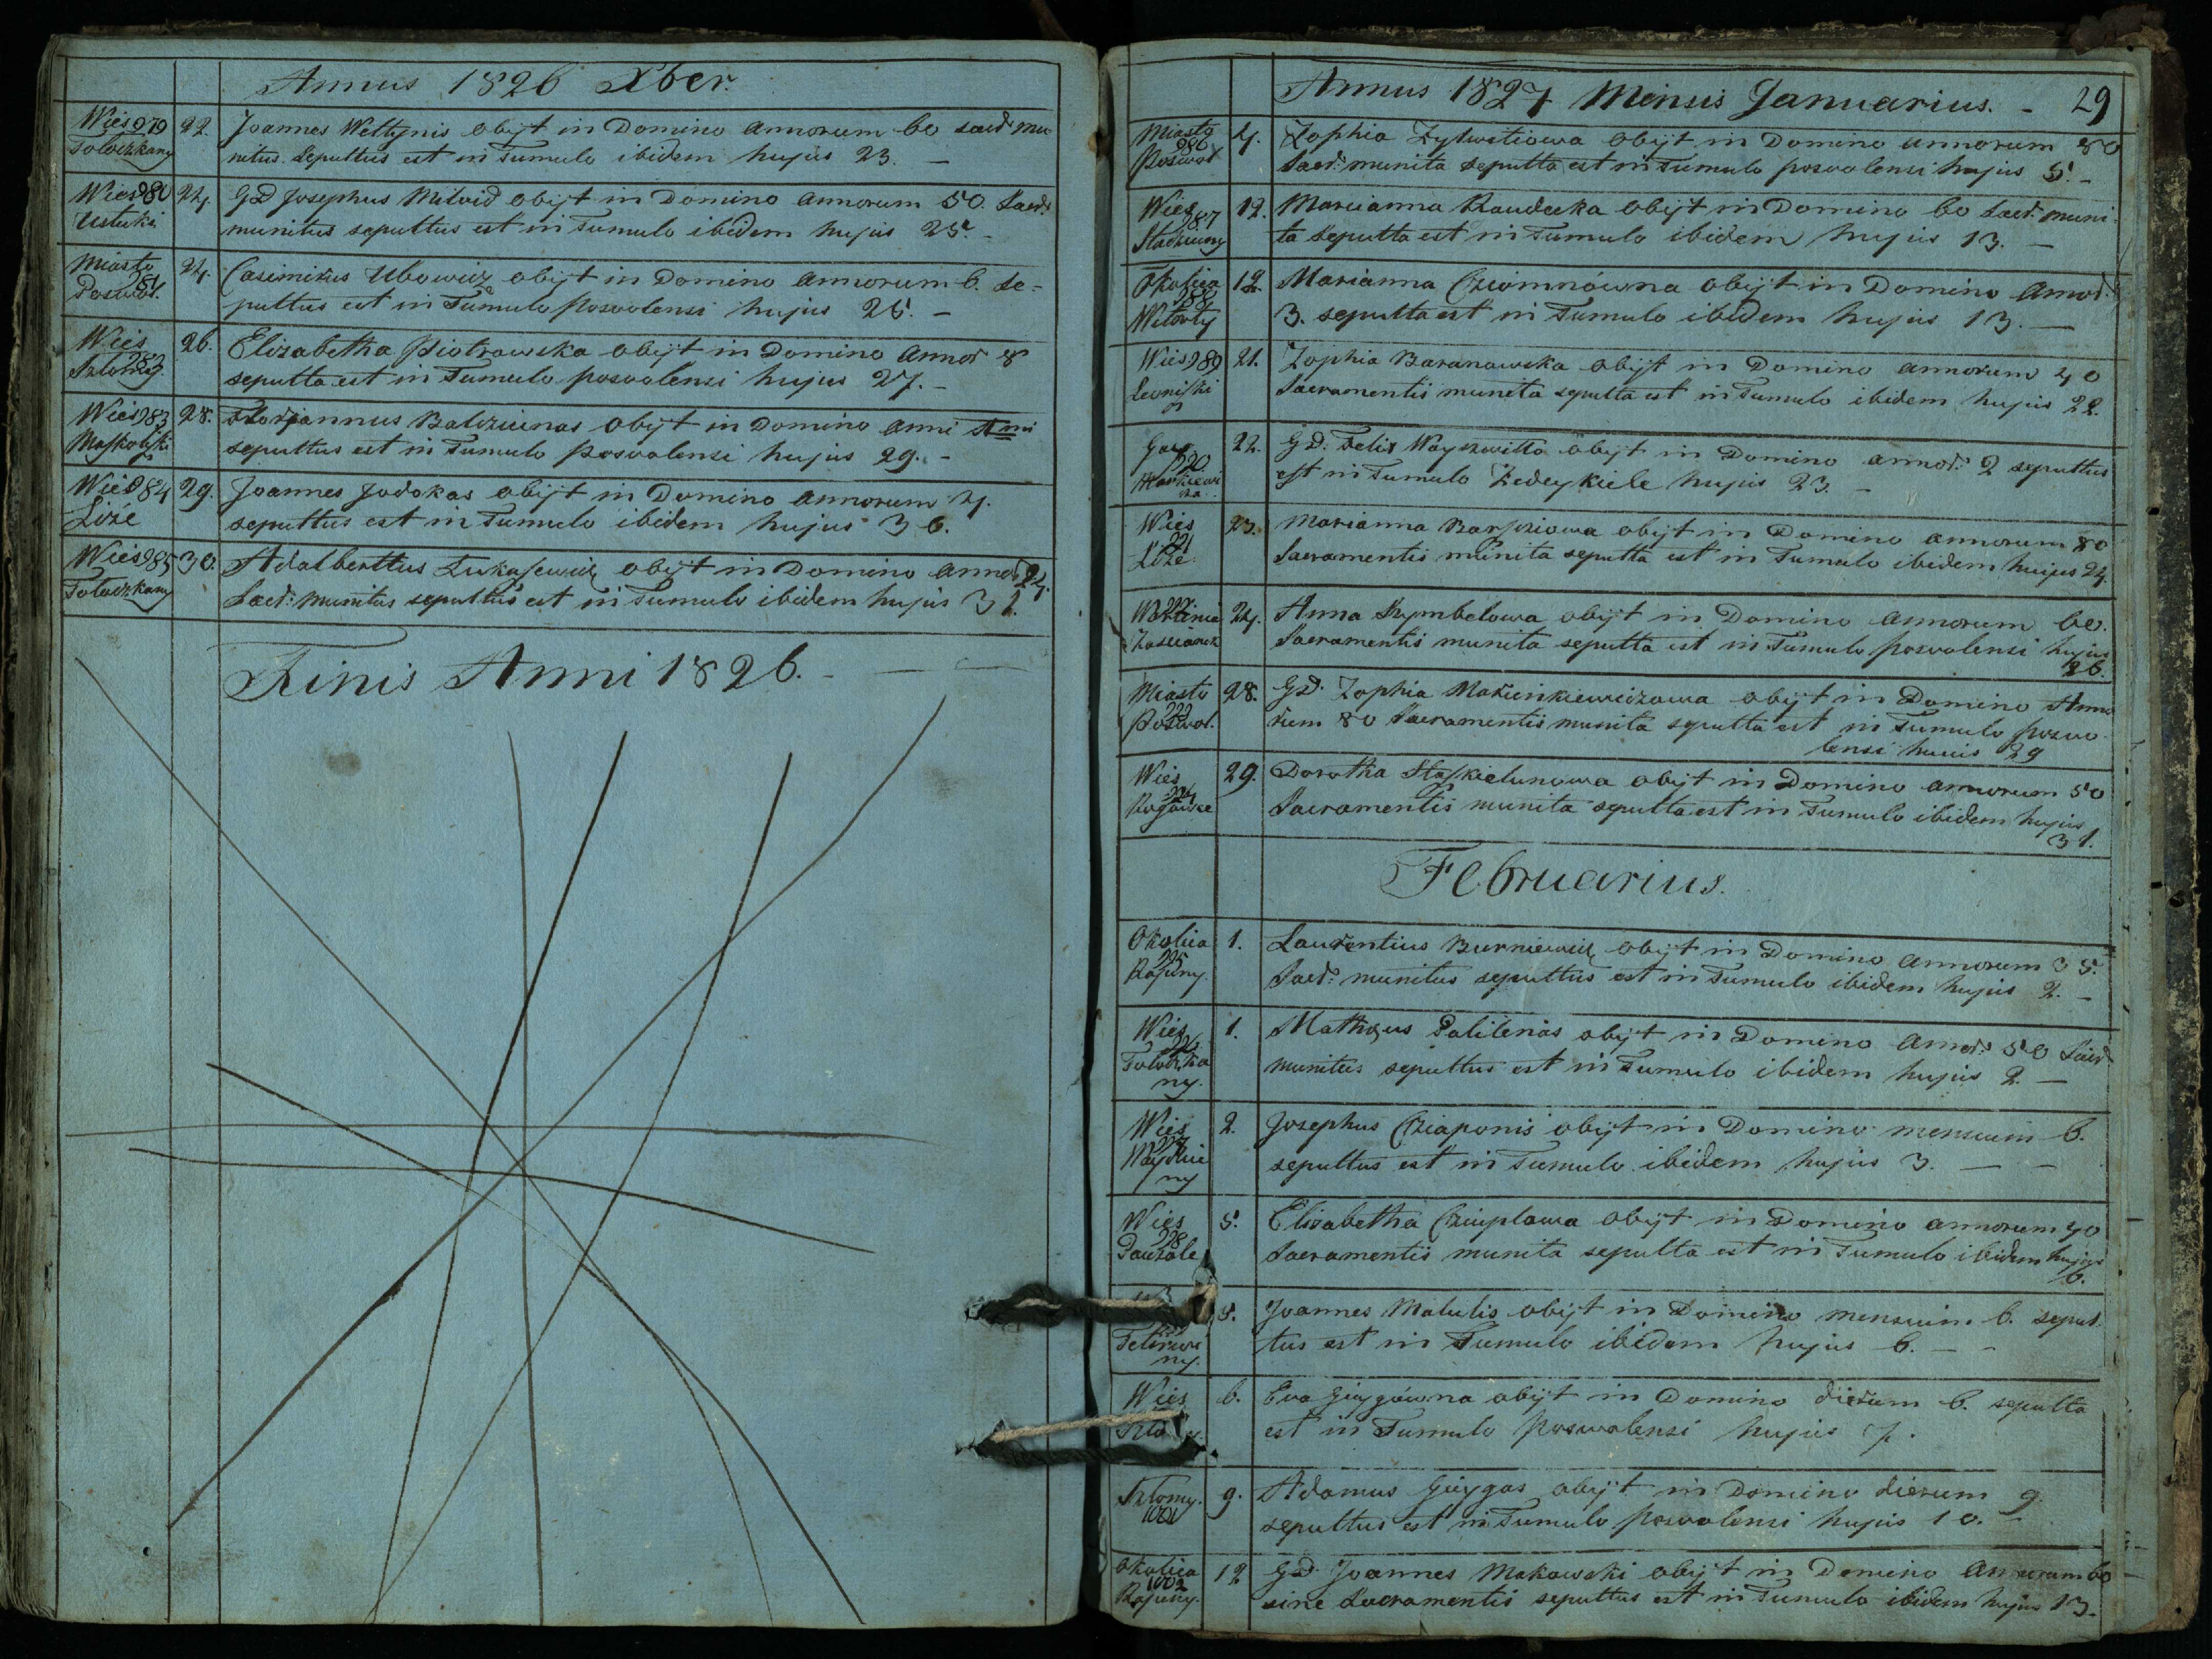 Annus 1826 Xber.
Wieś 979 22. Joannes Wettynis obijt in Domino annorum 60 sacr: mu
Toloczkany nitus. sepultus est in Tumulo ibidem hujus 23. —
Wieś 980 24. GD Josephus Milwid obijt in Domino annorum 50. Sacr:
Ustuki munitus sepultus est in Tumulo ibidem hujus 25. -
Miasto 24. Casimirus Ubowicz obijt in Domino annorum 6. se-
Poswol. pultus est in Tumulo poswolensi hujus 25. -
Wieś 26. Elizabetha Piotrowska obijt in Domino annor 8
sepulta est in Tumulo poswolensi hujus 27. -
Wieś 983 28. Floryannus Balcziunas obijt in Domino anni 1mi
sepultus est in Tumulo poswolensi hujus 29. -
Wieś 984 29. Joannes Jodokas obijt in Domino annorum 4.
Liże sepultus est in Tumulo ibidem hujus 30.
Wieś 985 30. Adalberttus Lukasewicz obijt in Domino annor 24.
Toloczkany Sacr: munitus sepultus est in Tumulo ibidem hujus 31.
Finis Anni 1826. —
Annus 1827 Mensis Januarius. - 29
Miasto 4. Zophia obijt in Domino annorum 80
986
Poswol Sacr: munita sepulta est in Tumulo poswolensi hujus 5. -
Wieś 12. Marcianna Raudecka obijt in Domino 60 Sacr: muni-
987
ta sepulta est in Tumulo ibidem hujus 13. —
Okolica 12. Marianna Cziomnówna obijt in Domino annor:
988
Witorty 3. sepulta est in Tumulo ibidem hujus 13. —
Wieś 989 21. Zophia Baranowska obijt in Domino annorum 40
Sacramentis munita sepulta est in Tumulo ibidem hujus 22.
22. GD. Felix Woyszwitto obijt in Domino annor: 2 sepultus
est in Tumulo hujus 23. -
Wieś 23. Marianna obijt in Domino annorum 80
991
Liże Sacramentis munita sepulta est in Tumulo ibidem hujus 24.
24. Anna Rymbelowa obijt in Domino annorum 60.
Zascianek Sacramentis munita sepulta est in Tumulo poswolensi hujus
26.
Miasto 28. GD. Zophia Marcinkiewiczowa obijt in Domino Anno
993
Poswol. rum 80 Sacramentis munita sepulta est in Tumulo poswo
lensi hujus 29
Wieś 29. Dorotha Staszkielunowa obijt in Domino annorum 50
994
Sacramentis munita sepulta est in Tumulo ibidem hujus
31.
Februarius.
Okolica 1. Laurentius Burniewicz obijt in Domino annorum 35.
995
Rapuny. Sacr: munitus sepultus est in Tumulo ibidem hujus 2. -
Wieś 1. Matheus Palilenas obijt in Domino annor: 50 Sacr:
996
Toloczka
ny. munitus sepultus est in Tumulo ibidem hujus 2. —
Wieś 2. Josephus Cziaponis obijt in Domino mensium 6.
997
sepultus est in Tumulo ibidem hujus 3. — -
ny
Wieś 5. Elisabetha Cziuplowa obijt in Domino annorum 40
998
Pauzole Sacramentis munita sepulta est in Tumulo ibidem hujus
6.
5. Joannes Matulis obijt in Domino mensium 6. sepul-
tus est in Tumulo ibidem hujus 6. - -
ny.
Wieś 6. Eva Giugówna obijt in Domino dierum 6. sepulta
est in Tumulo poswolensi hujus 7.
9. Adamus obijt in Domino dierum 9.
1001
sepultus est in Tumulo poswolensi hujus 10. -
Okolica 12 GD Joannes Makowski obijt in Domino annorum 60
1002
Rapuny. sine Sacramentis sepultus est in Tumulo ibidem hujus 13.